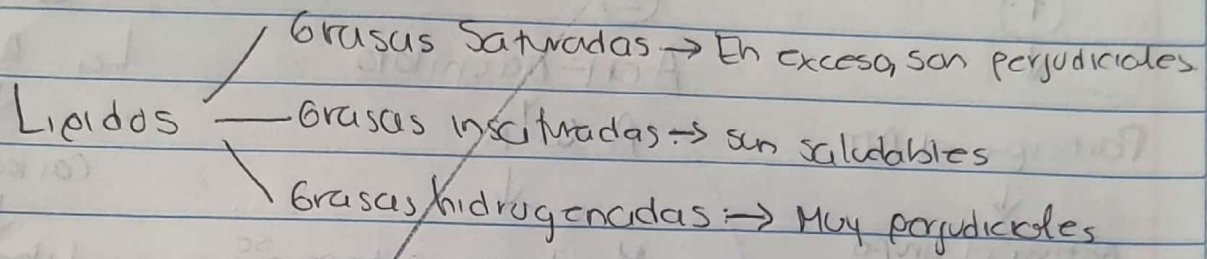 Grasas Saturadas → En exceso, son perjudiciales
Lípidos — Grasas insaturadas → son saludables
Grasas hidrogenadas → Muy perjudiciales